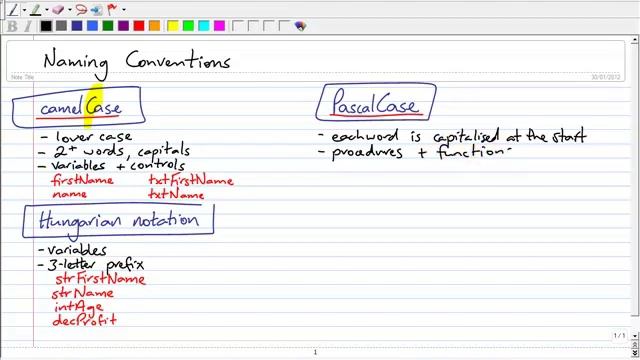 B I
Naming Conventions
Note Title
30/01/2012
camelCase
- lower case
- 2+ words, capitals
- variables + controls
firstName txtFirstName
name txtName
Hungarian notation
- variables
- 3-letter prefix
strFirstName
strName
intAge
decProfit
PascalCase
- each word is capitalised at the start
- procedures + function
1
1/1